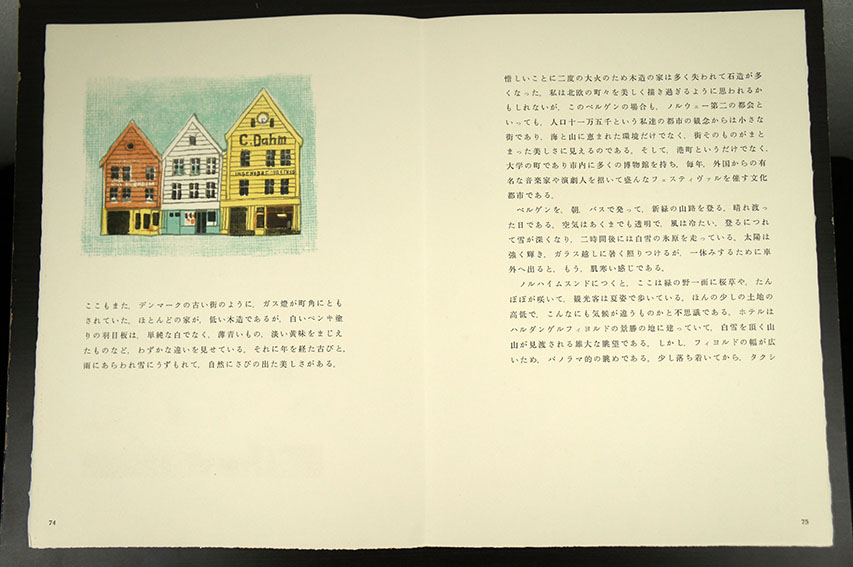 C.Dahm
ここもまた，デンマークの古い街のように，ガス燈が町角にとも
されていた。ほとんどの家が，低い木造であるが，白いペンキ塗
りの羽目板は，単純な白でなく，薄青いもの，淡い黄味をまじえ
たものなど，わずかな違いを見せている。それに年を経た古びと，
雨にあらわれ雪にうずもれて，自然にさびの出た美しさがある。
74
惜しいことに二度の大火のため木造の家は多く失われて石造が多
くなった。私は北欧の町々を美しく描き過ぎるように思われるか
もしれないが，このベルゲンの場合も，ノルウェー第二の都会と
いっても，人口十一万五千という私達の都市の観念からは小さな
街であり，海と山に恵まれた環境だけでなく，街そのものがまと
まった美しさに見えるのである。そして，港町というだけでなく，
大学の町であり市内に多くの博物館を持ち，毎年，外国からの有
名な音楽家や演劇人を招いて盛んなフェスティヴァルを催す文化
都市である。
ベルゲンを，朝，バスで発って，新緑の山路を登る。晴れ渡っ
た日である。空気はあくまでも透明で，風は冷たい。登るにつれ
て雪が深くなり，二時間後には白雪の氷原を走っている。太陽は
強く輝き，ガラス越しに暑く照りつけるが，一休みするために車
外へ出ると，もう，肌寒い感じである。
ノルハイムスンドにつくと，ここは緑の野一面に桜草や，たん
ぽぽが咲いて，観光客は夏姿で歩いている。ほんの少しの土地の
高低で，こんなにも気候が違うものかと不思議である。ホテルは
ハルダンゲルフィヨルドの景勝の地に建っていて，白雪を頂く山
山が見渡される雄大な眺望である。しかし，フィヨルドの幅が広
いため，パノラマ的の眺めである。少し落ち着いてから，タクシ
75